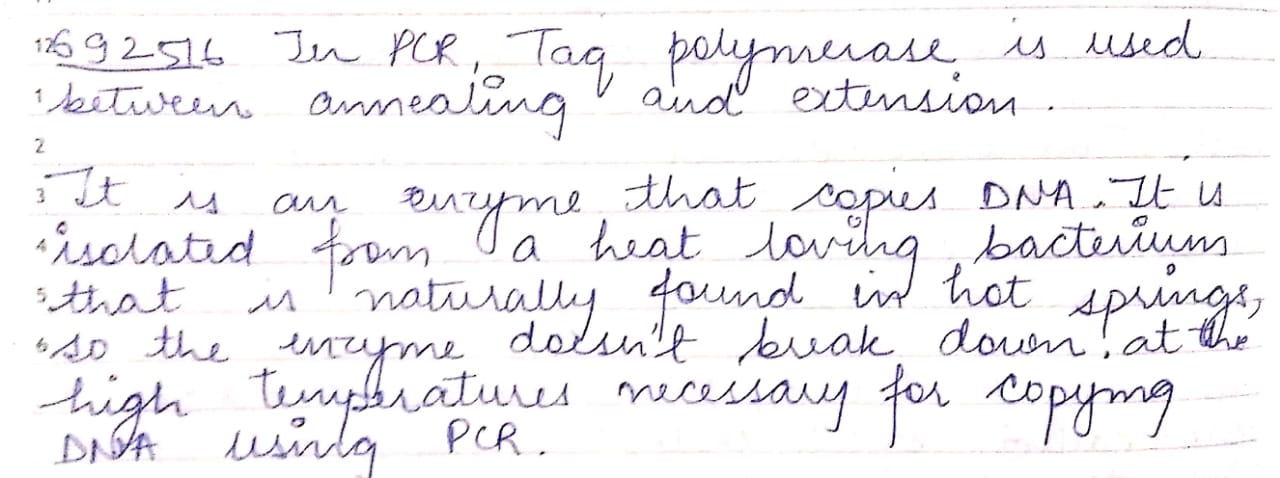 12 692516 In PCR, Taq polymerase is used
1 between annealing and extension.
2
3 It is an enzyme that copies DNA. It is
4 isolated from a heat loving bacterium
5 that is naturally found in hot springs,
6 so the enzyme doesn't break down at the
high temperatures necessary for copying
DNA using PCR.